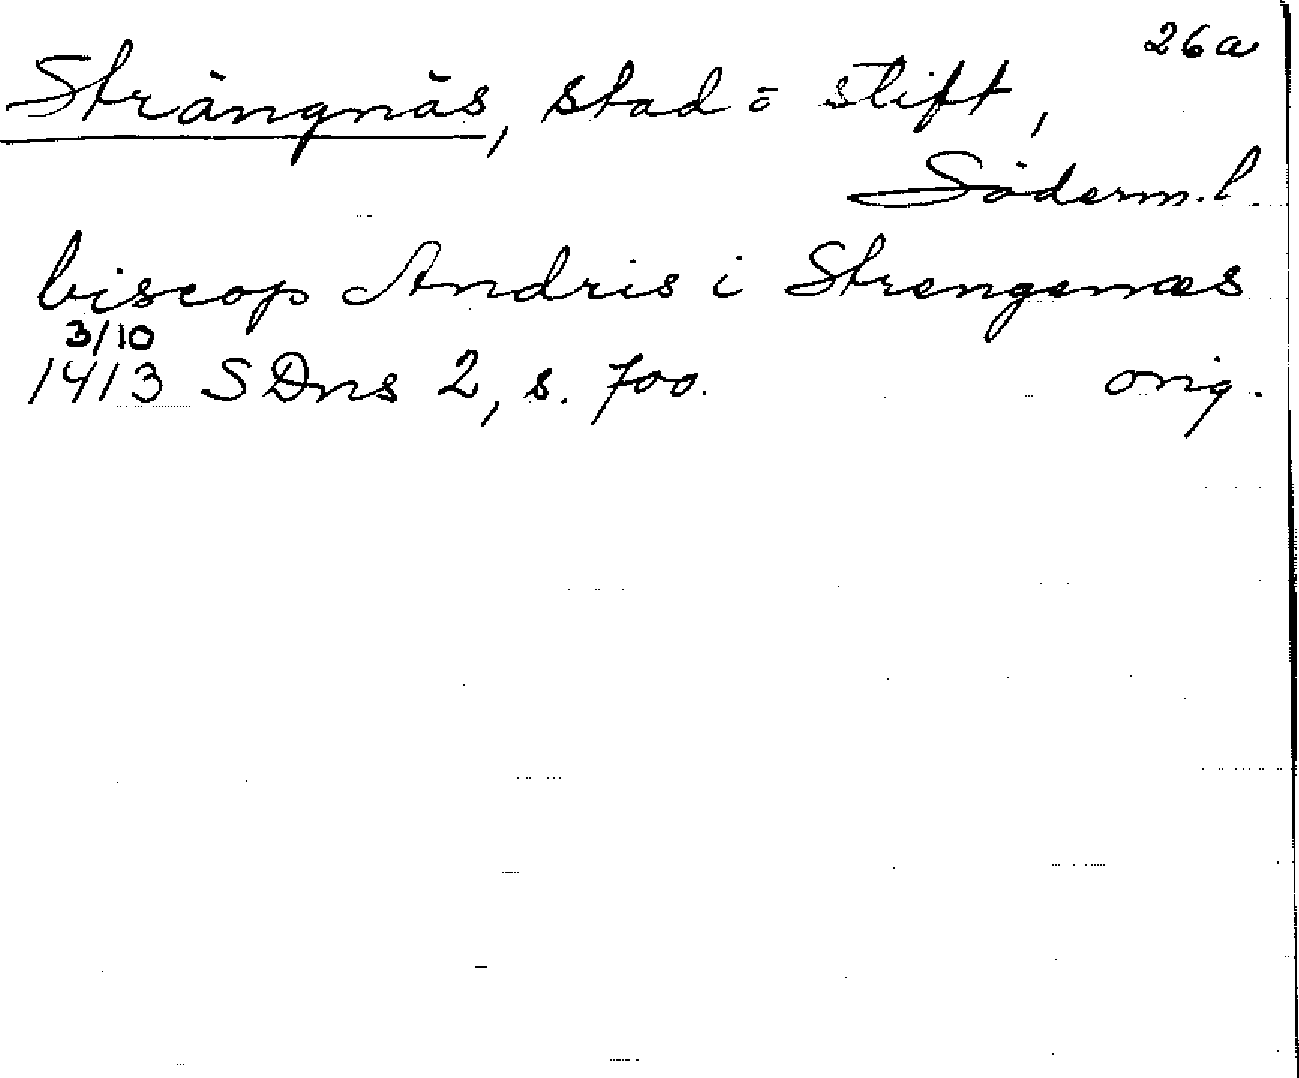 26a
Strängnäs, stad o stift,
Söderm. l.
biscop Andris i Strengenæs
3/10
1413 SDns 2, s. 700. orig.